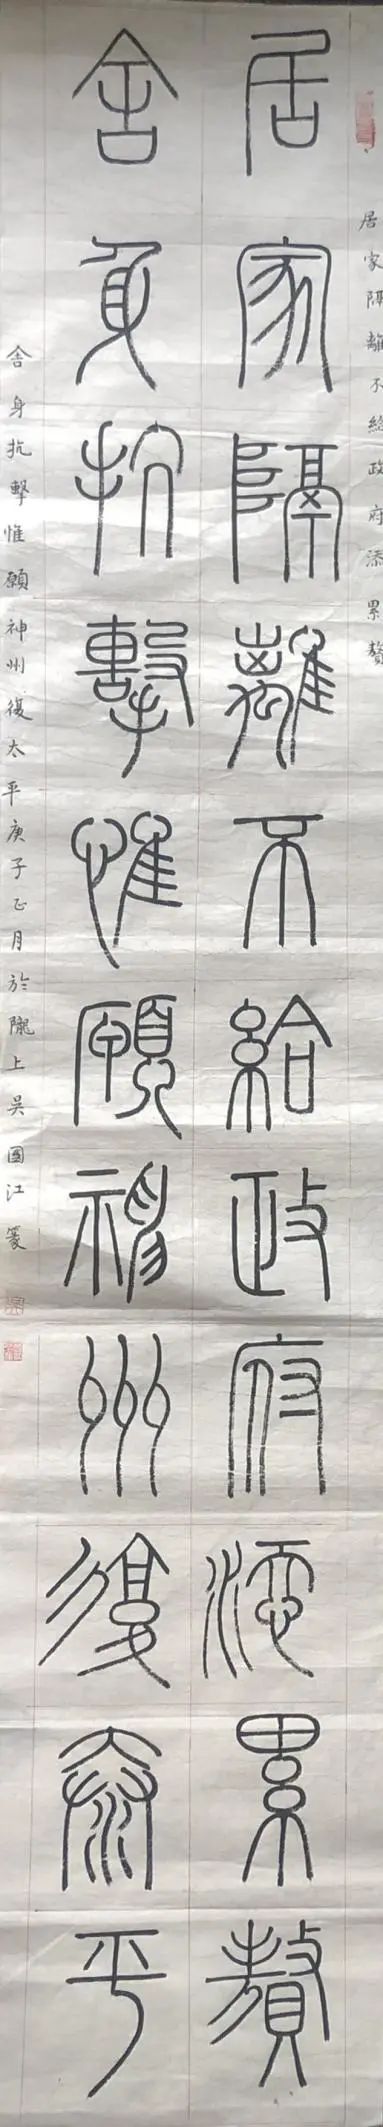 居家隔離不給政府添累贅
居家隔離不給政府添累贅
舍身抗擊惟願神州復泰平
舍身抗擊惟願神州復太平庚子正月於隴上吳國江篆